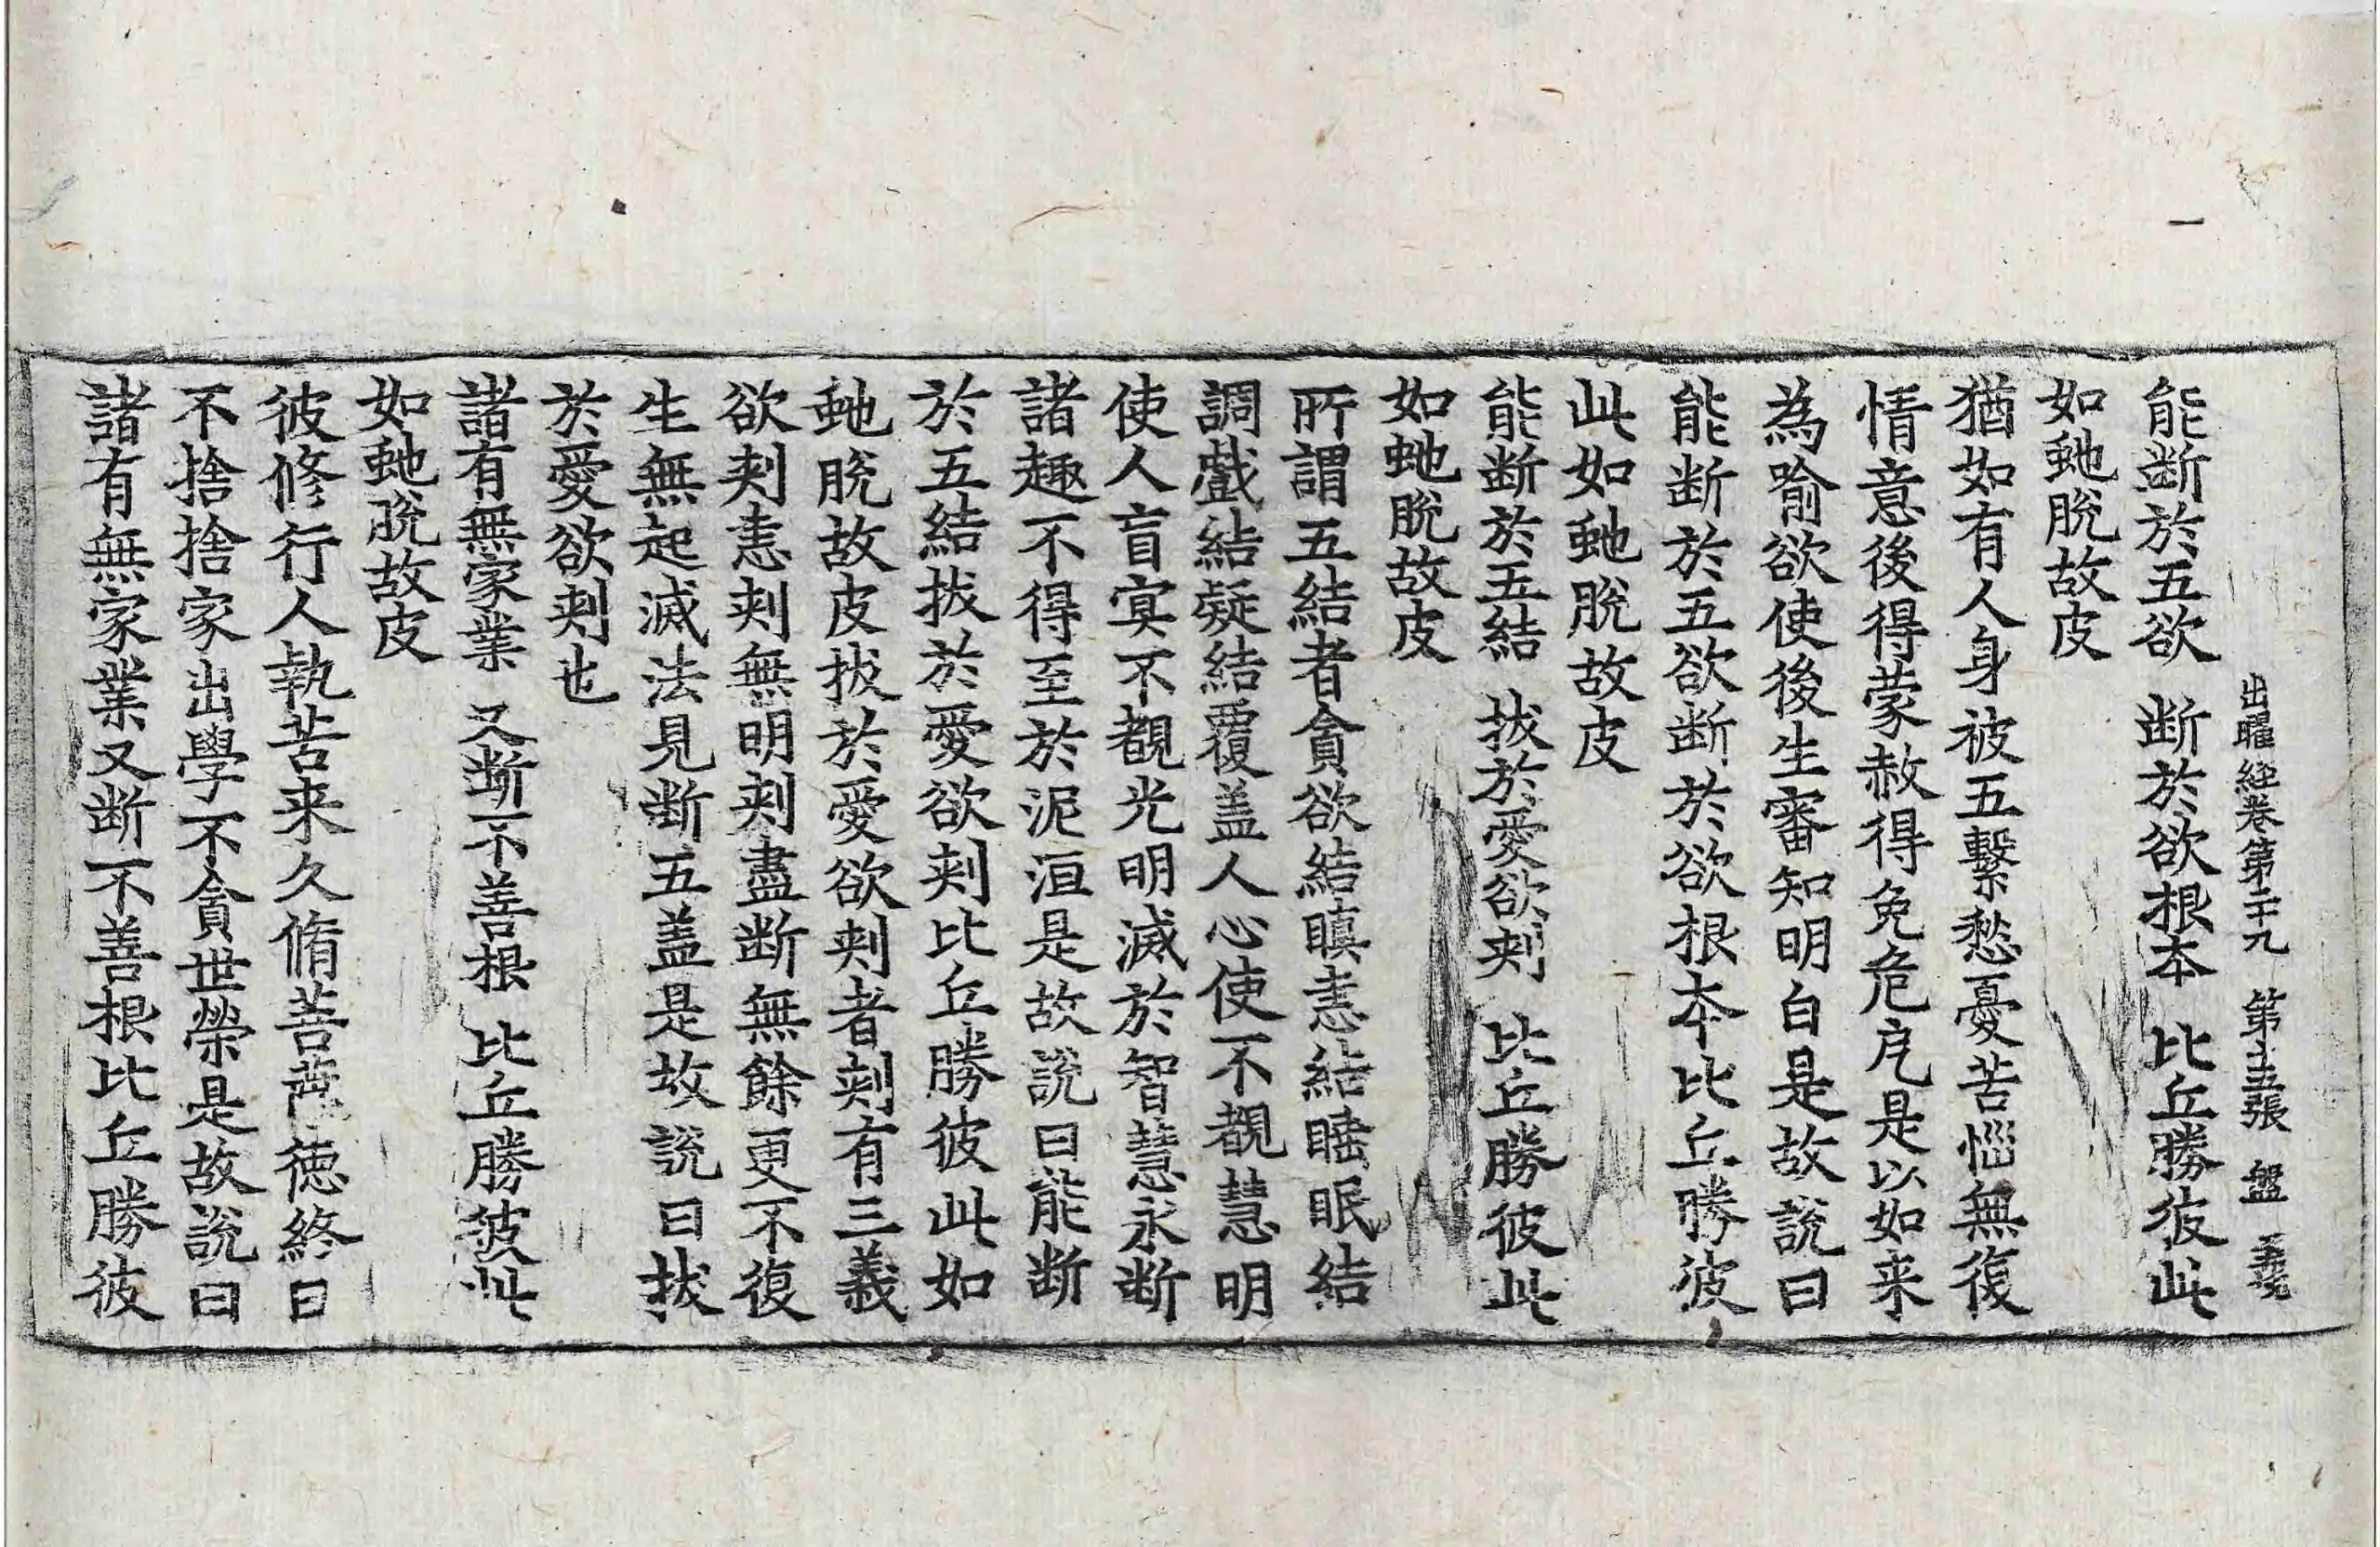 出曜經卷第二十九　第十五張　盤
能断於五欲　断於欲根本　比丘勝彼此
如虵脫故皮
猶如有人身被五繫愁憂苦惱無復
情意後得蒙赦得免危厄是以如来
為喻欲使後生審知明白是故說曰
能断於五欲断於欲根本比丘勝彼
此如虵脫故皮
能断於五結　拔於愛欲刾　比丘勝彼此
如虵脫故皮
所謂五結者貪欲結瞋恚結睡眠結
調戲結疑結覆盖人心使不覩慧明
使人盲冥不覩光明滅於智慧永断
諸趣不得至於泥洹是故說曰能断
於五結拔於愛欲刾比丘勝彼此如
虵脫故皮拔於愛欲刾者刾有三義
欲刾恚刾無明刾盡断無餘更不復
生無起滅法見断五盖是故說曰拔
於愛欲刾也
諸有無家業　又断不善根　比丘勝彼此
如虵脫故皮
彼修行人執苦来久脩菩薩德終日
不捨捨家出學不貪世榮是故說曰
諸有無家業又断不善根比丘勝彼